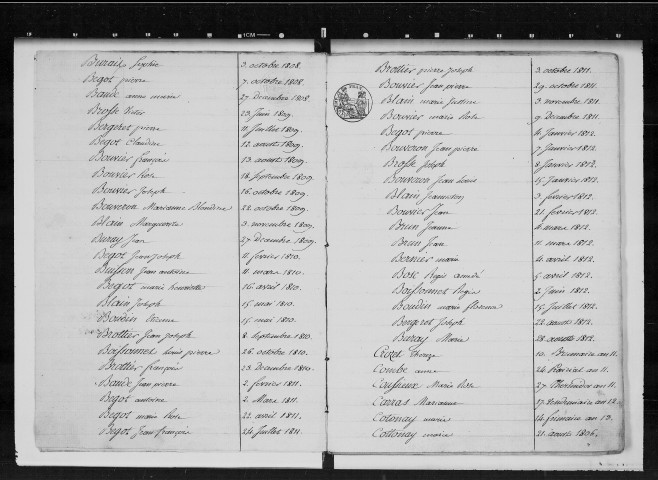 Burais Sophie 3 octobre 1808.
Begot pierre 7 octobre 1808.
Baude anne marie 27 decembre 1808.
Brosse Victor 23 Juin 1809.
Bergeret pierre 11 Juillet 1809.
Begot Claudine 12 aoust 1809.
Bouvier françois 13 aoust 1809.
Bouvier Rose 18 Septembre 1809.
Bouvier Joseph 16 octobre 1809.
Bouveron Marianne Blandine 22 octobre 1809.
Blain Marguerite 3 novembre 1809.
Buray Jean 27 decembre 1809.
Begot Jean Joseph 11 fevrier 1810.
Buisson Jean antoine 11 mars 1810.
Begot marie henriette 16 avril 1810.
Blain Joseph 15 mai 1810.
Boudin 15 mai 1810.
Brottier Jean Joseph 8 Septembre 1810.
Boissonnet Louis pierre 26 octobre 1810.
Brottier françois 23 decembre 1810.
Baude Jean pierre 2 fevrier 1811.
Begot antoine 2 Mars 1811.
Begot marie Rose 22 avril 1811.
Begot Jean françois 24 Juillet 1811.
Brottier pierre Joseph 3 octobre 1811.
Bouvier Jean pierre 29 octobre 1811.
Blain marie Justine 3 novembre 1811.
Bouvier marie Rose 9 decembre 1811.
Begot pierre 4 Janvier 1812.
Bouveron Jean pierre 7 Janvier 1812.
Brosse Joseph 8 Janvier 1812.
Bouveron Jean Louis 15 Janvier 1812.
Blain 3 fevrier 1812.
Bouvier Jean 21 fevrier 1812.
Brun Jeanne 4 mars 1812.
Brun Jean 11 mars 1812.
Bernier marie 4 avril 1812.
Bosc Regis amedé 5 avril 1812.
Boissonnet Regis 2 Juin 1812.
Boudin marie florence 15 Juillet 1812.
Bergeret Joseph 22 aoust 1812.
Buray Marie 28 aoust 1812.
10 Brumaire an 11.
Combe anne 24 Prairial an 11.
Marie Rose 27 Thermidor an 11.
Carras Marianne 17 Vendemiaire an 12.
Colonay marie 14 frimaire an 13.
Collonay marie 21 aoust 1806.